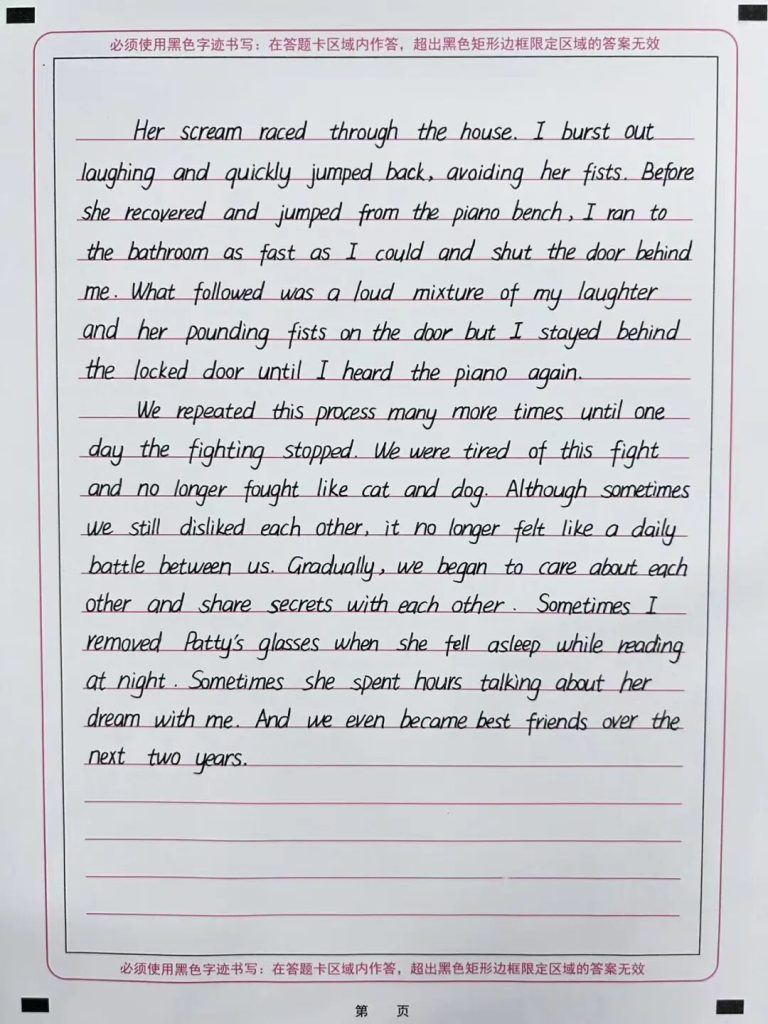 必须使用黑色字迹书写：在答题卡区域内作答，超出黑色矩形边框限定区域的答案无效
Her scream raced through the house. I burst out
laughing and quickly jumped back, avoiding her fists. Before
she recovered and jumped from the piano bench, I ran to
the bathroom as fast as I could and shut the door behind
me. What followed was a loud mixture of my laughter
and her pounding fists on the door but I stayed behind
the locked door until I heard the piano again.
We repeated this process many more times until one
day the fighting stopped. We were tired of this fight
and no longer fought like cat and dog. Although sometimes
we still disliked each other, it no longer felt like a daily
battle between us. Gradually, we began to care about each
other and share secrets with each other. Sometimes I
removed Patty's glasses when she fell asleep while reading
at night. Sometimes she spent hours talking about her
dream with me. And we even became best friends over the
next two years.
必须使用黑色字迹书写：在答题卡区域内作答，超出黑色矩形边框限定区域的答案无效
第 页